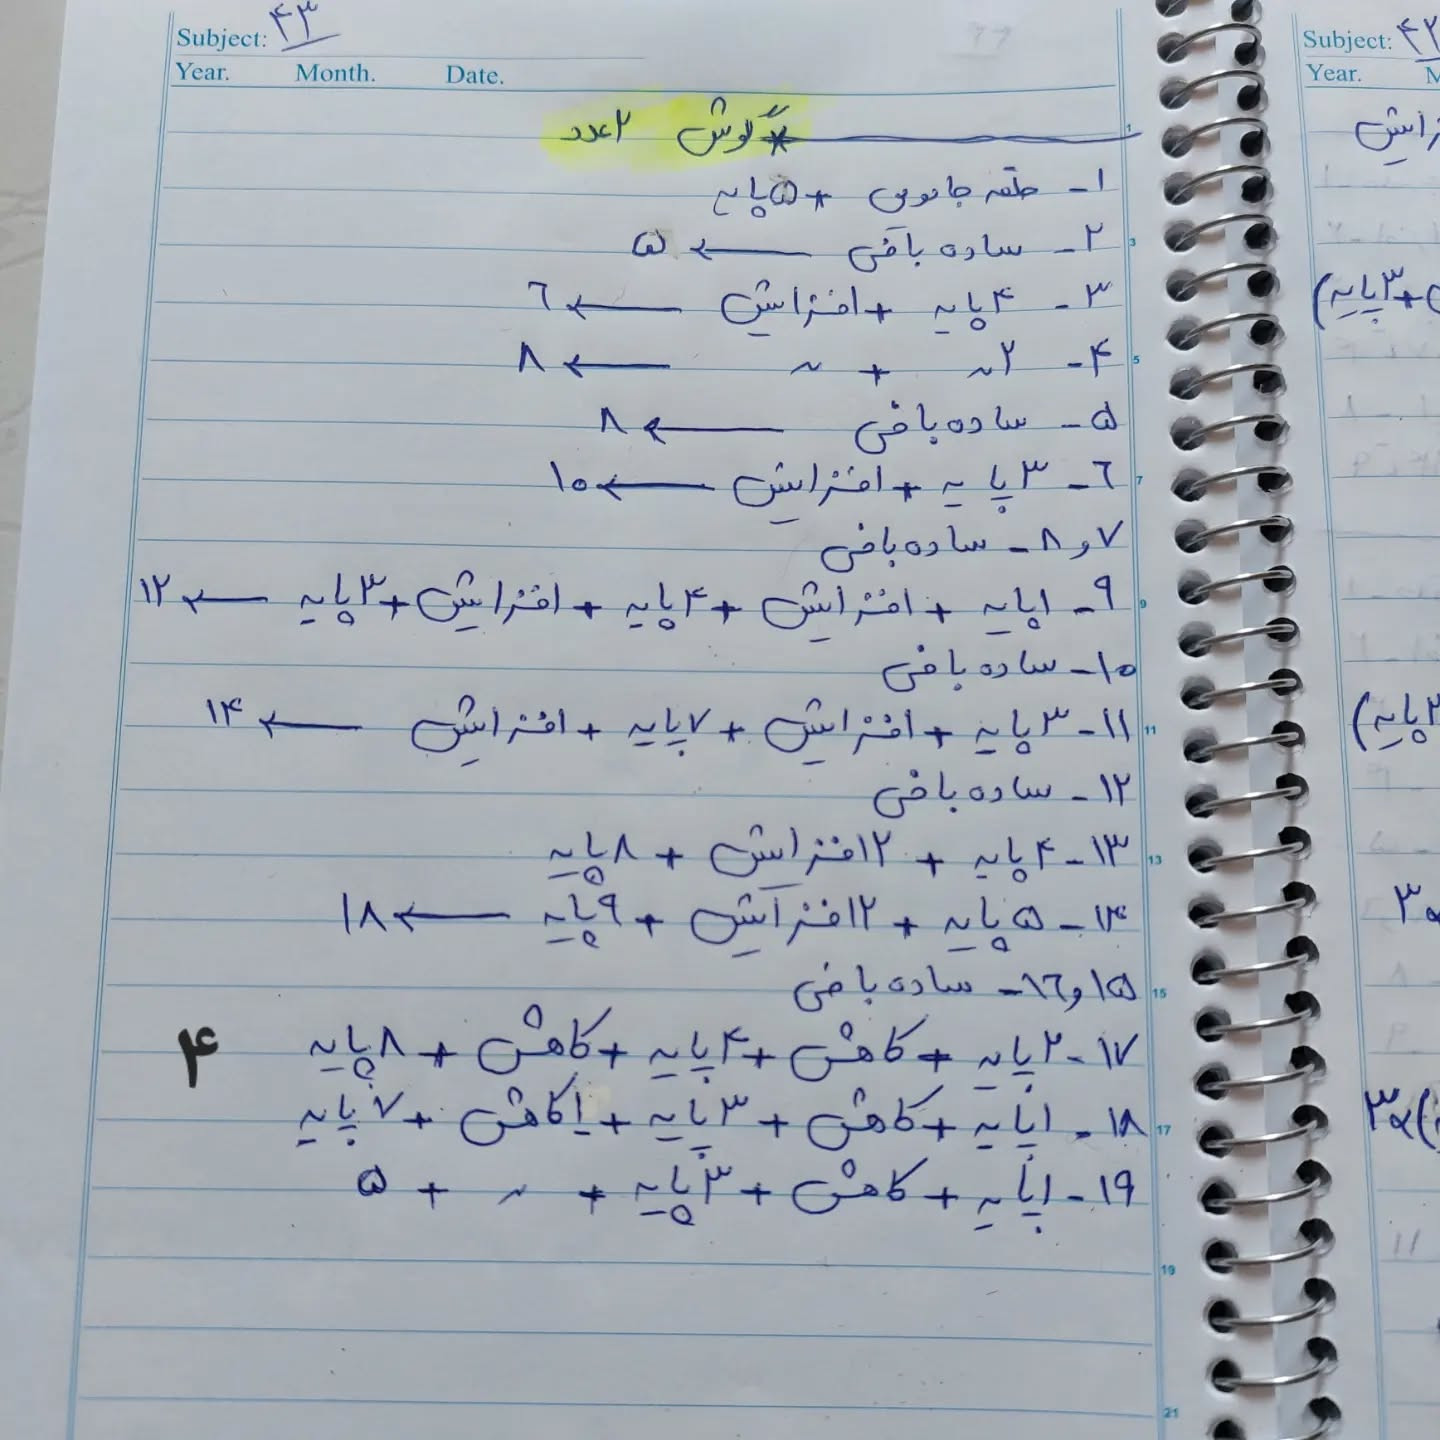 Subject: ۴۳
Year. Month. Date.
* گوش ۲عدد
۱- حلقه جادویی + ۵پایه
۲- ساده بافی ← ۵
۳- ۴پایه + افزایش ← ٦
۴- ۲ ~ + ~ ← ۸
۵- ساده بافی ← ۸
٦- ۳پایه + افزایش ← ۱۰
۷ و ۸- ساده بافی
۹- ۱پایه + افزایش + ۴پایه + افزایش + ۳پایه ← ۱۲
۱۰- ساده بافی
۱۱- ۳پایه + افزایش + ۷پایه + افزایش ← ۱۴
۱۲- ساده بافی
۱۳- ۴پایه + ۲افزایش + ۸پایه
۱۴- ۵پایه + ۲افزایش + ۹پایه ← ۱۸
۱۵ و ۱٦- ساده بافی
۱۷- ۲پایه + کاهش + ۴پایه + کاهش + ۸پایه
۴
۱۸- ۱پایه + کاهش + ۳پایه + ۱کاهش + ۷پایه
۱۹- ۱پایه + کاهش + ۳پایه + ~ + ۵
Subject: ۴۲
Year.
۳پایه)
۲پایه)